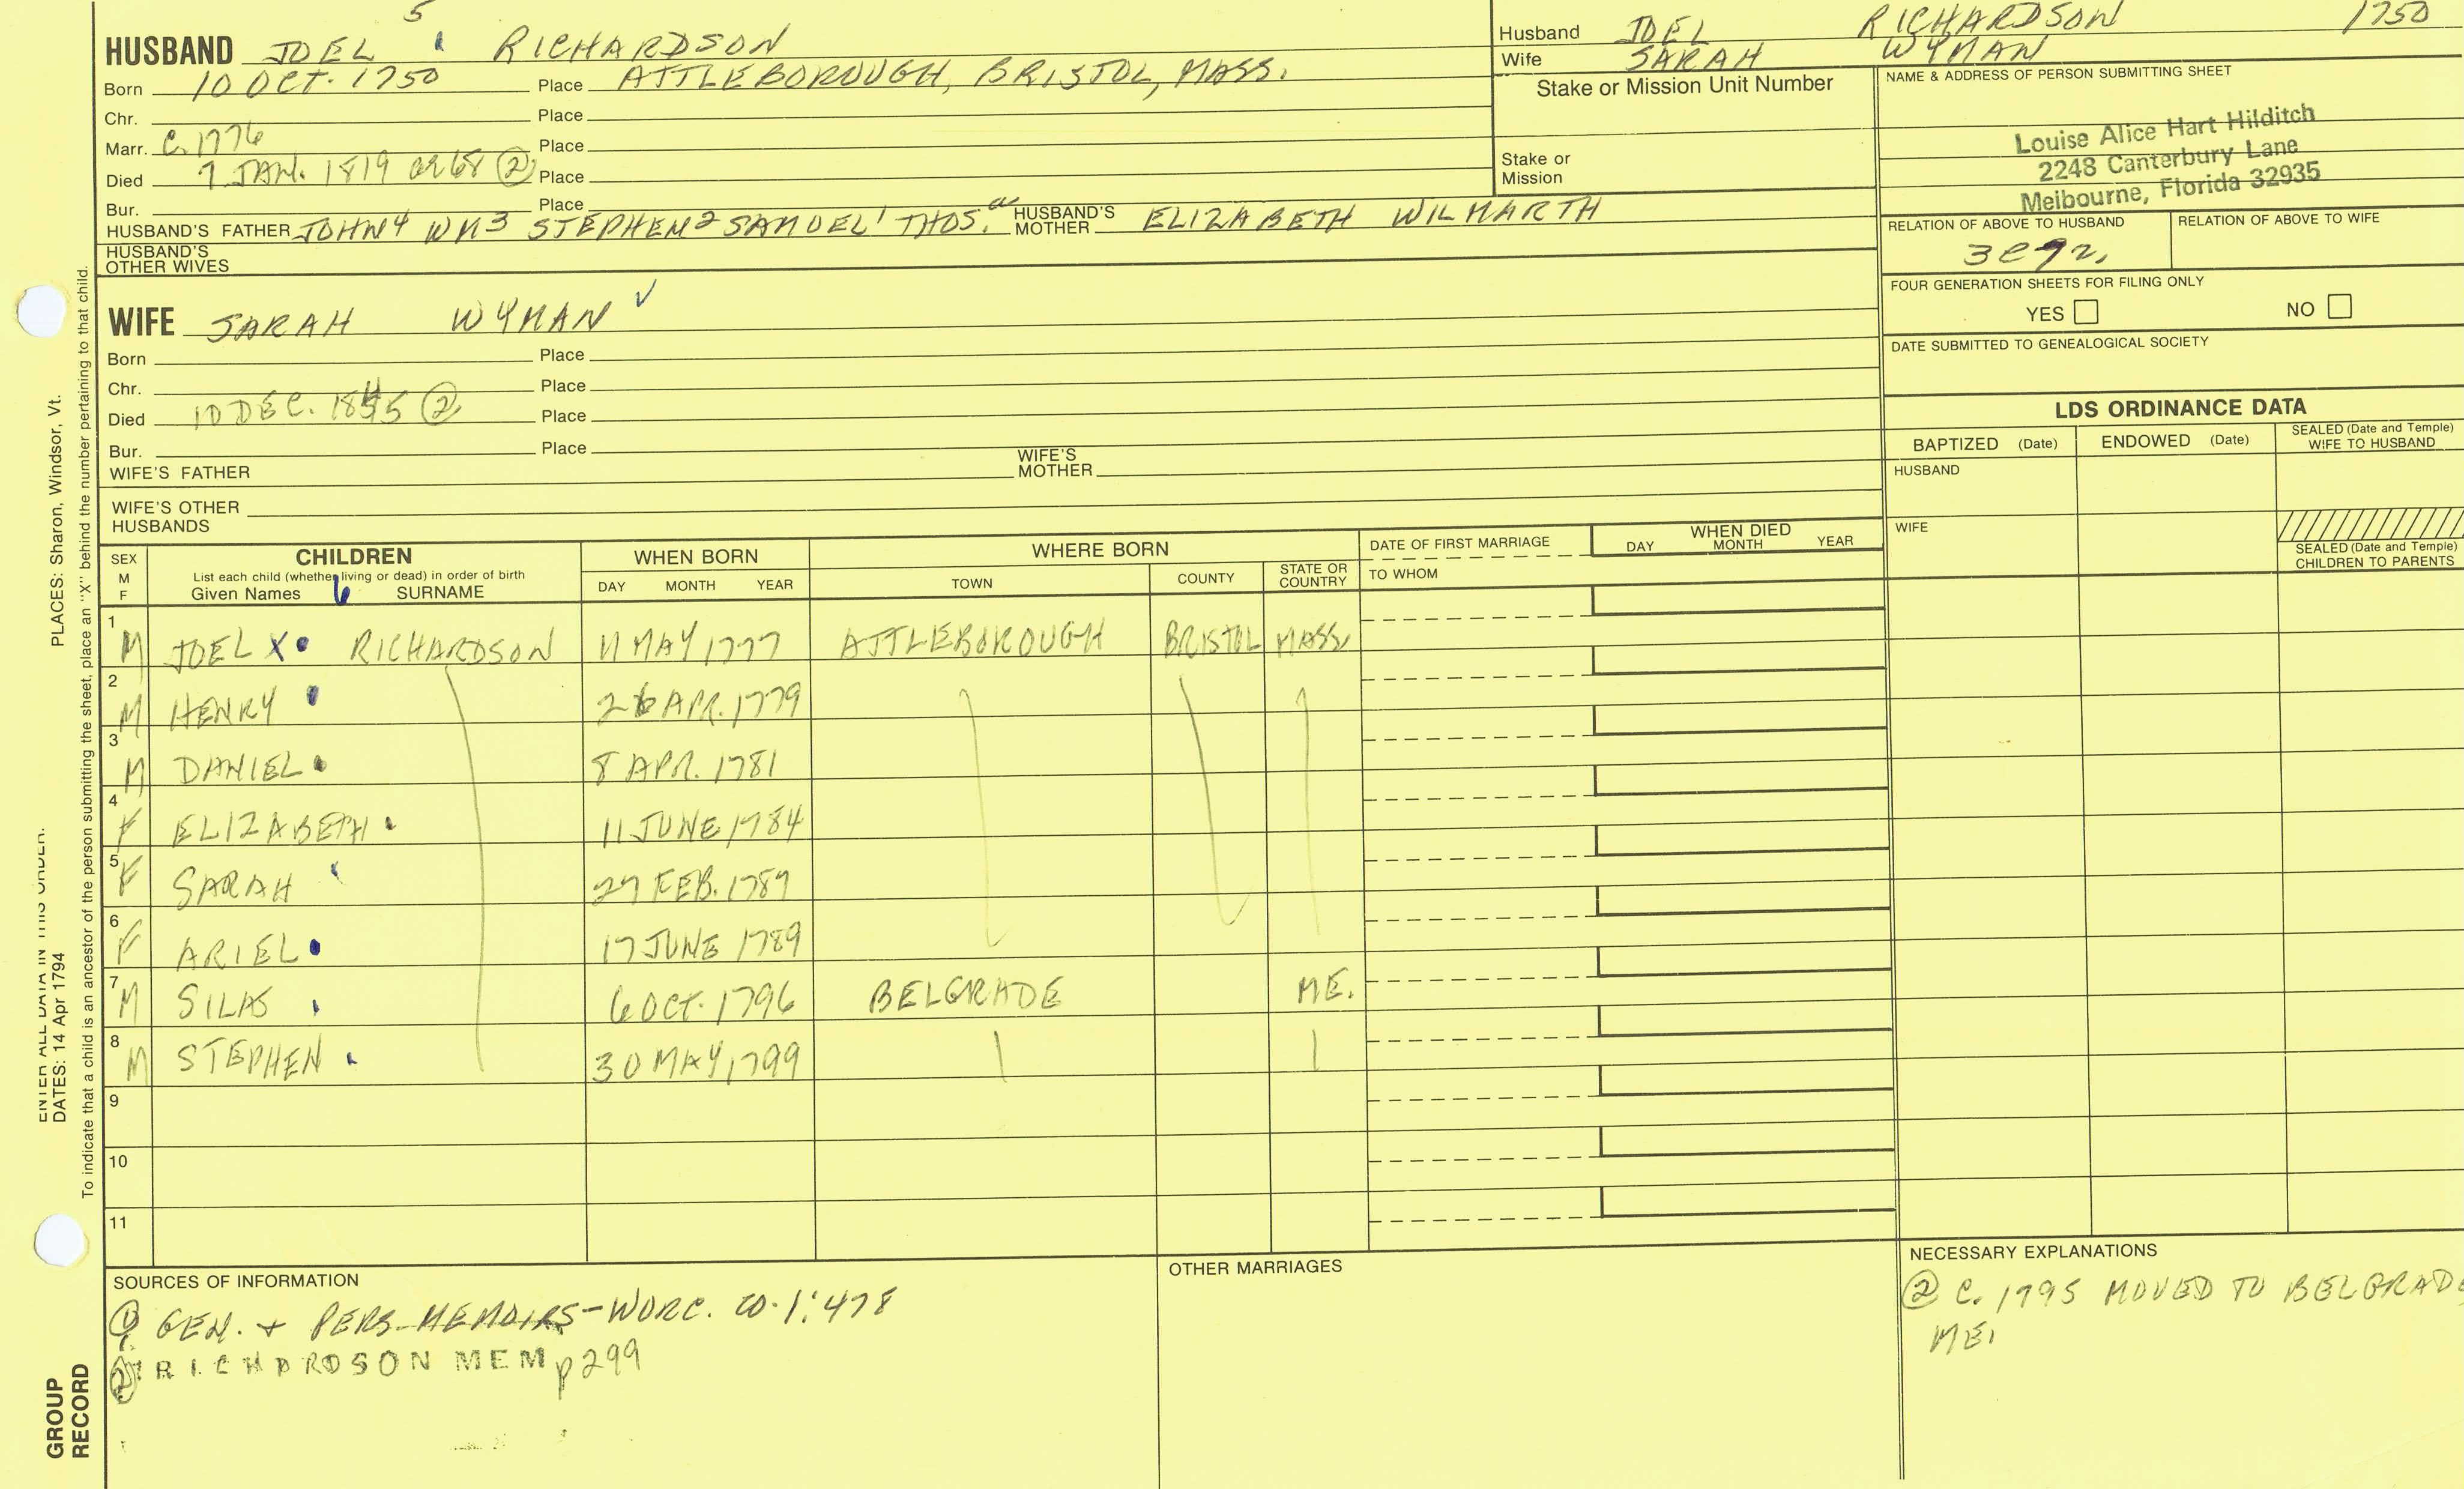 5
HUSBAND JOEL RICHARDSON
Born 10 OCT. 1750 Place ATTLEBOROUGH, BRISTOL, MASS.
Chr. Place
Marr. C. 1776 Place
Died 7 JAN. 1819 OR 68 ② Place
Bur. Place
HUSBAND'S FATHER JOHN4 WM3 STEPHEN2 SAMUEL1 THOS. a HUSBAND'S MOTHER ELIZABETH WILMARTH
HUSBAND'S OTHER WIVES
Husband JOEL RICHARDSON 1750
Wife SARAH WYMAN
Stake or Mission Unit Number
Stake or
Mission
NAME & ADDRESS OF PERSON SUBMITTING SHEET
Louise Alice Hart Hilditch
2248 Canterbury Lane
Melbourne, Florida 32935
RELATION OF ABOVE TO HUSBAND RELATION OF ABOVE TO WIFE
FOUR GENERATION SHEETS FOR FILING ONLY
YES NO
DATE SUBMITTED TO GENEALOGICAL SOCIETY
WIFE SARAH WYMAN ✓
Born Place
Chr. Place
Died 10 DEC. 1845 ② Place
Bur. Place
WIFE'S FATHER WIFE'S MOTHER
WIFE'S OTHER
HUSBANDS
LDS ORDINANCE DATA
BAPTIZED (Date) ENDOWED (Date) SEALED (Date and Temple) WIFE TO HUSBAND
HUSBAND
WIFE
SEALED (Date and Temple)
CHILDREN TO PARENTS
SEX M F
CHILDREN
List each child (whether living or dead) in order of birth
Given Names 6 SURNAME
WHEN BORN
DAY MONTH YEAR
WHERE BORN
TOWN COUNTY STATE OR COUNTRY
DATE OF FIRST MARRIAGE
TO WHOM
WHEN DIED
DAY MONTH YEAR
1 M JOEL X RICHARDSON 11 MAY 1777 ATTLEBOROUGH BRISTOL MASS.
2 M HENRY 26 APR. 1779
3 M DANIEL 8 APR. 1781
4 F ELIZABETH 11 JUNE 1784
5 F SARAH 27 FEB. 1787
6 F ARIEL 17 JUNE 1789
7 M SILAS 6 OCT. 1796 BELGRADE ME.
8 M STEPHEN 30 MAY, 1799
9
10
11
SOURCES OF INFORMATION
① GEN. + PERS. MEMOIRS - WORC. CO. 1:478
② RICHARDSON MEM p 299
OTHER MARRIAGES
NECESSARY EXPLANATIONS
② C. 1795 MOVED TO BELGRADE
ME.
PLACES: Sharon, Windsor, Vt.
ENTER ALL DATA IN THIS ORDER:
DATES: 14 Apr 1794
To indicate that a child is an ancestor of the person submitting the sheet, place an "X" behind the number pertaining to that child.
GROUP
RECORD